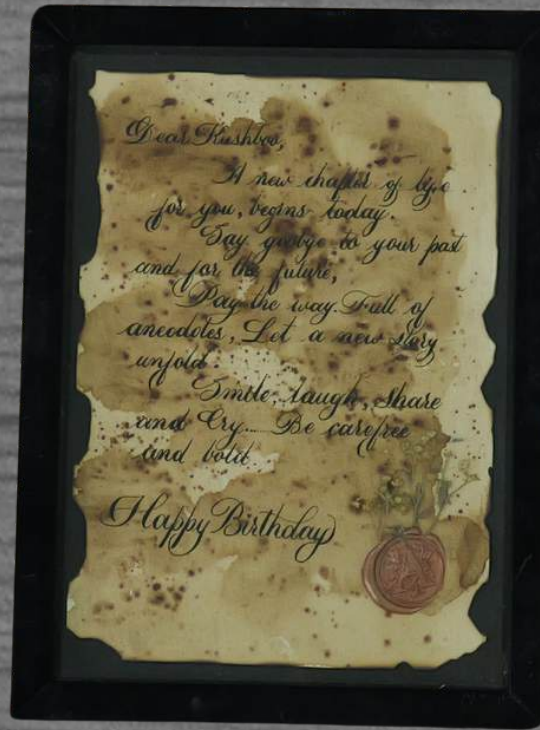 Dear Kushboo,
A new chapter of life
for you, begins today.
Say goobye to your past
and for the future,
Pay the way. Full of
anecdotes, Let a new story
unfold.
Smile, laugh, share
and Cry... Be carefree
and bold
Happy Birthday